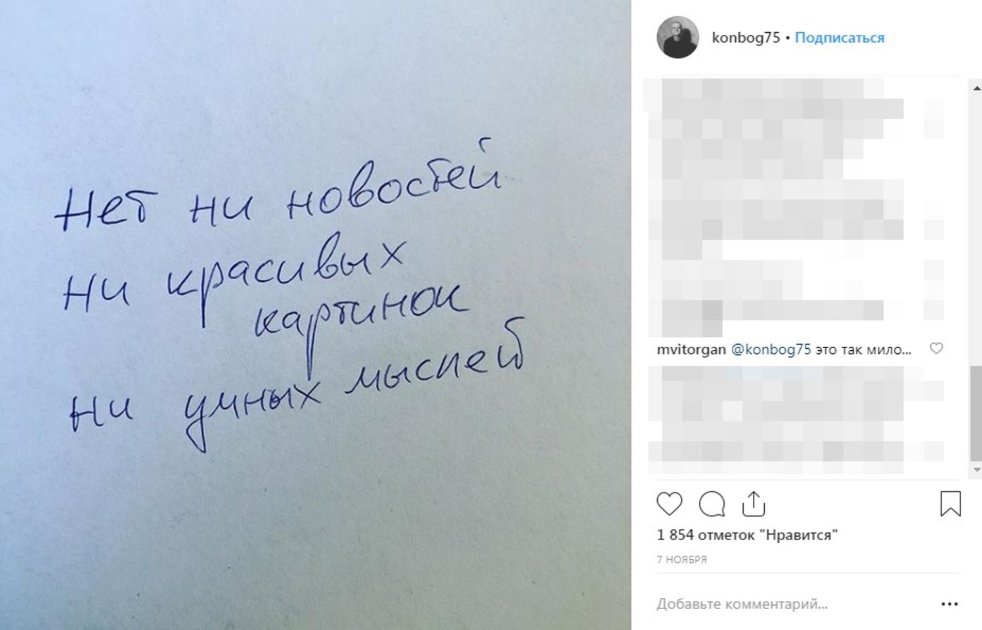 Нет ни новостей
ни красивых
картинок
ни умных мыслей
konbog75 • Подписаться
mvitorgan @konbog75 это так мило...
1 854 отметок "Нравится"
7 НОЯБРЯ
Добавьте комментарий...